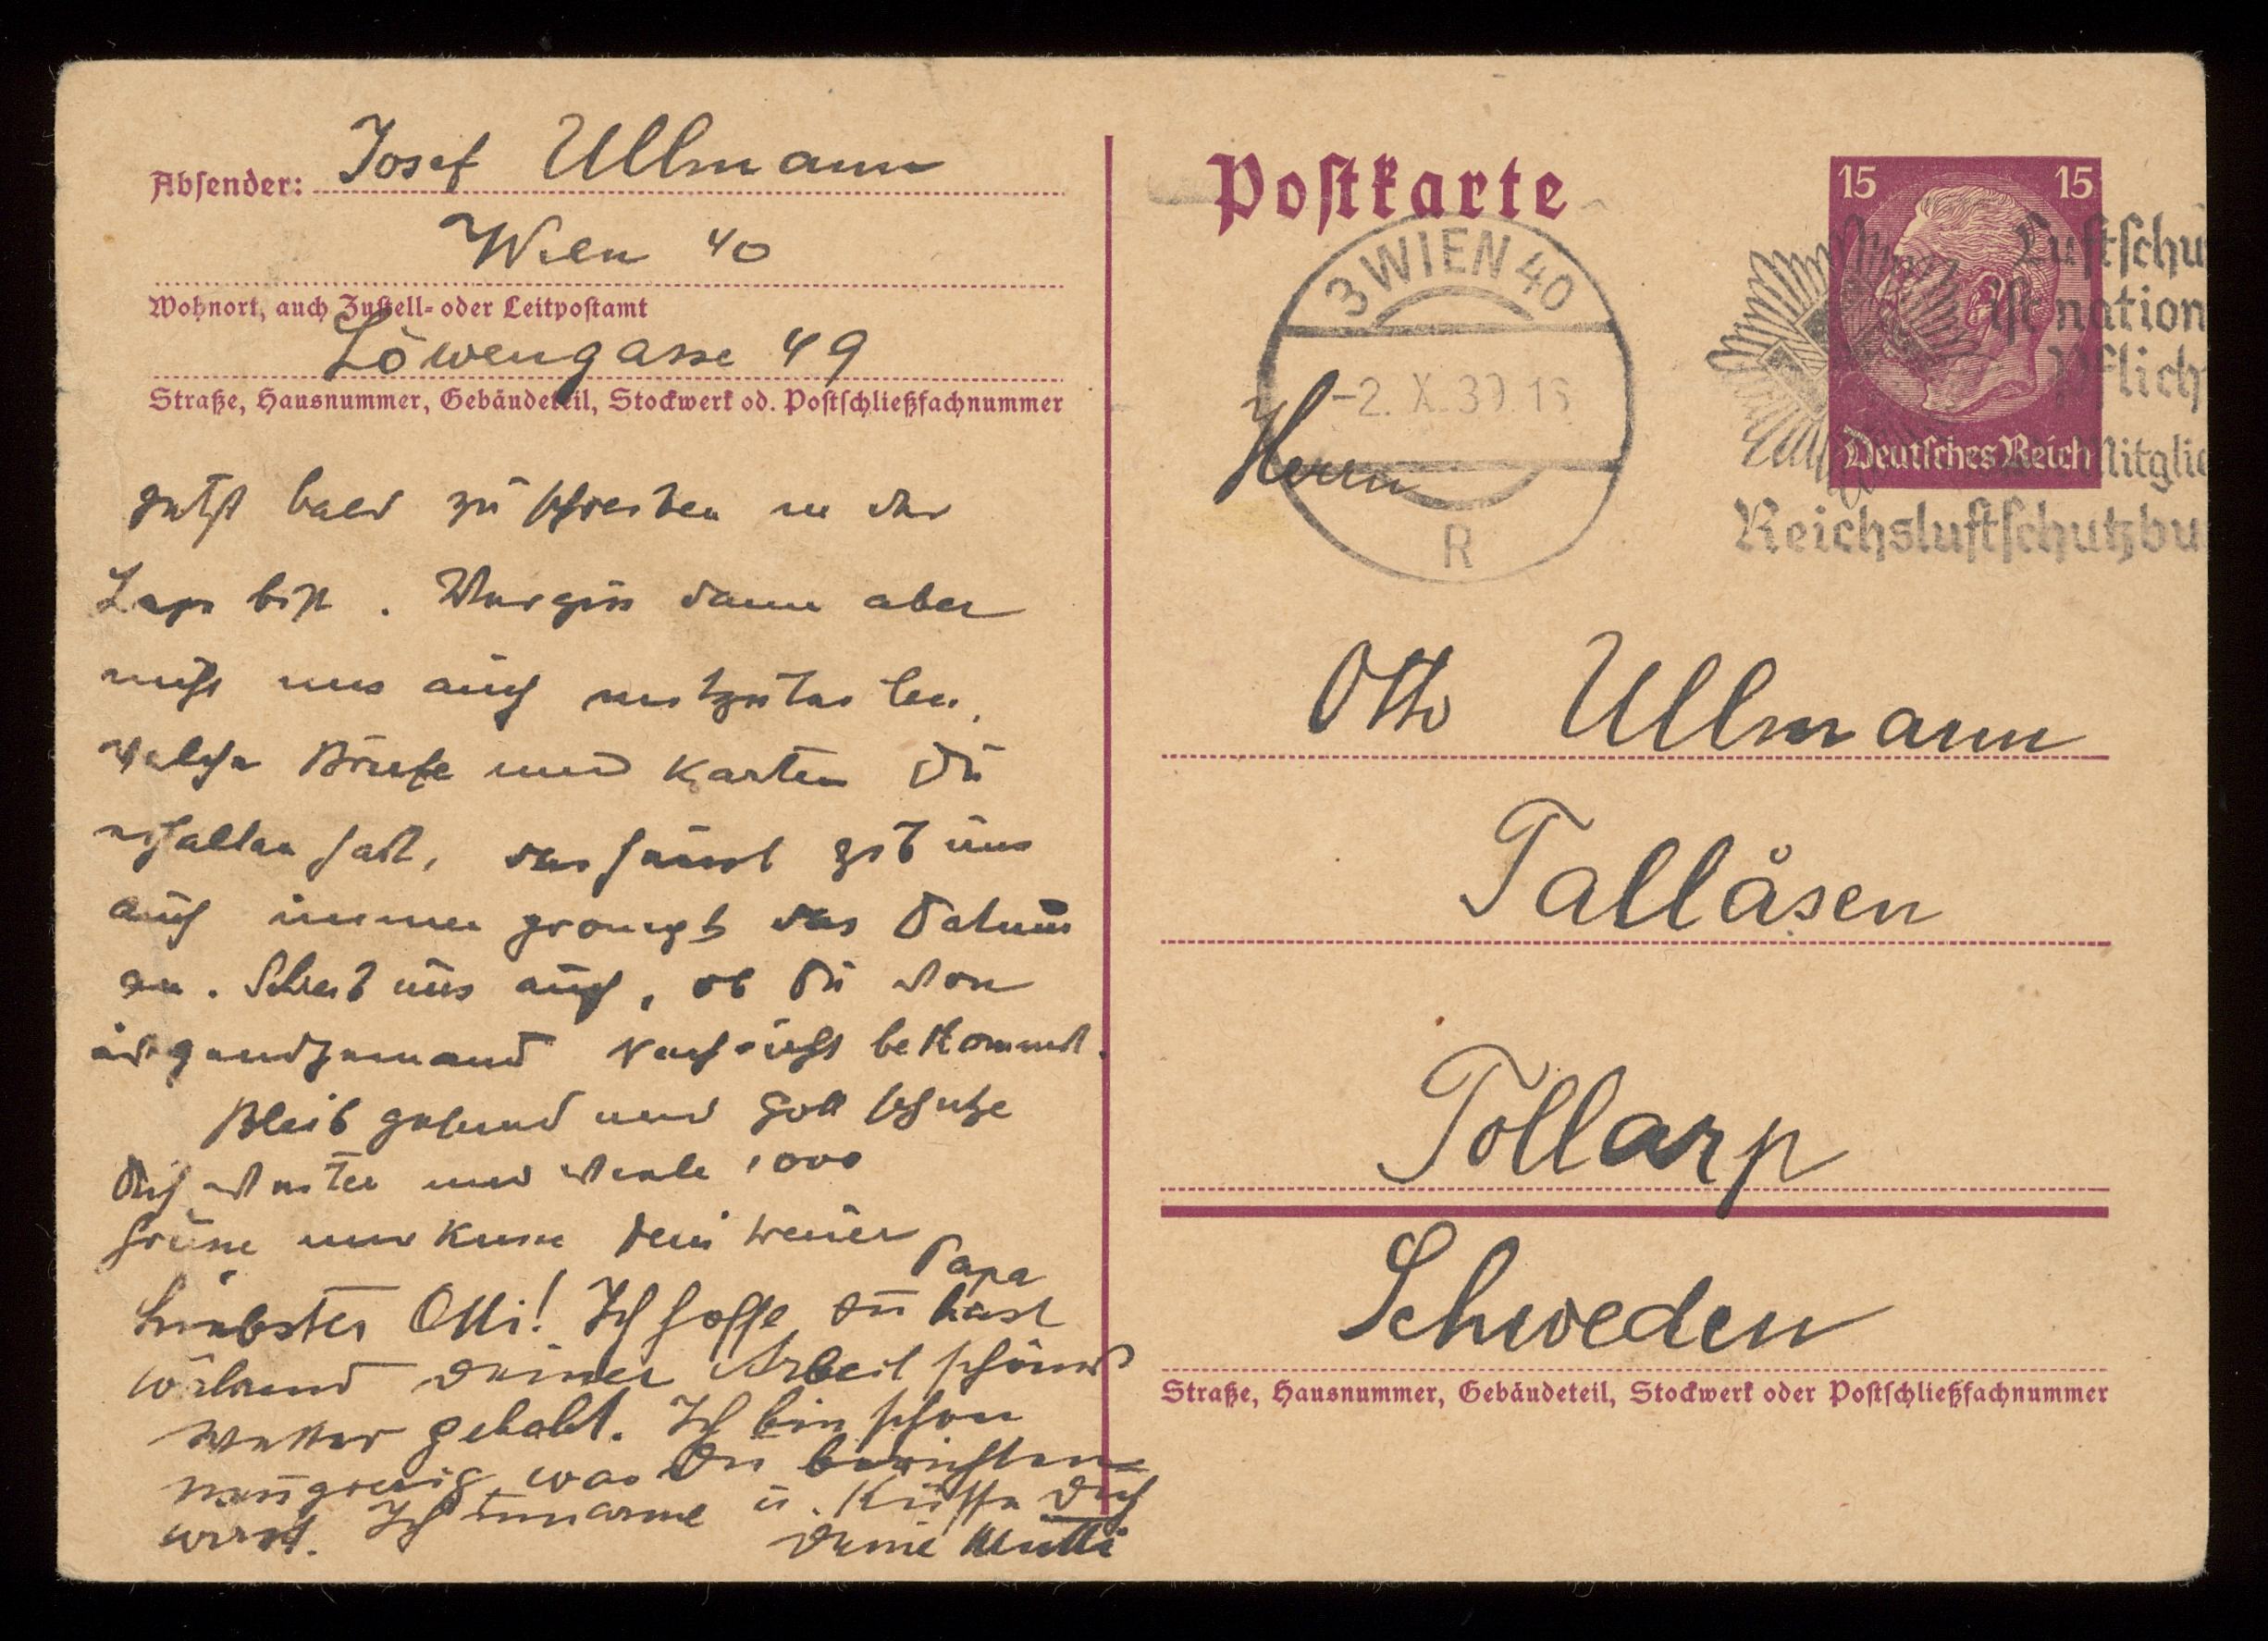 Absender: Josef Ullmann
Wien 40
Wohnort, auch Zustell- oder Leitpostamt
Löwengasse 49
Straße, Hausnummer, Gebäudeteil, Stockwerk od. Postschließfachnummer
jetzt bald zu schreiben in der
Lage bist. Vergiss dann aber
nicht uns auch mitzuteilen,
welche Briefe und Karten Du
erhalten hast, gib uns
auch immer das Datum
an. Schreib uns auch, ob Du von
irgendjemand Nachricht bekommst.
Bleib gesund und Gott schütze
Dich weiter und viele 1000
Grüsse und Küsse Dein treuer
Papa
Liebster Otti! Ich hoffe Du hast
während Deiner Arbeit schönes
Wetter gehabt. Ich bin schon
neugierig was Du berichten
wirst. Ich umarme u. küsse Dich
Deine Mutti
Postkarte
15 15
Deutsches Reich
3 WIEN 40
-2. X. 39. 16
R
Luftschu
ist nation
Pflich
Mitglie
Reichsluftschutzbu
Herrn
Otto Ullmann
Tallåsen
Tollarp
Schweden
Straße, Hausnummer, Gebäudeteil, Stockwerk oder Postschließfachnummer